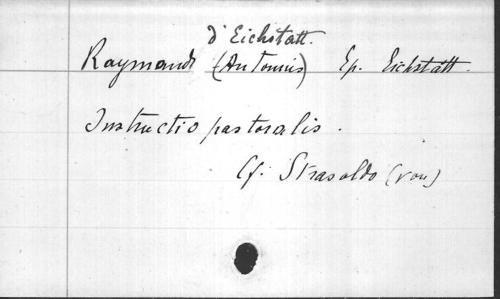 d'Eichstatt.
Raymond (Antonius) Ep. Eichstätt.
Instructio pastoralis.
Cf. Strasoldo (von)